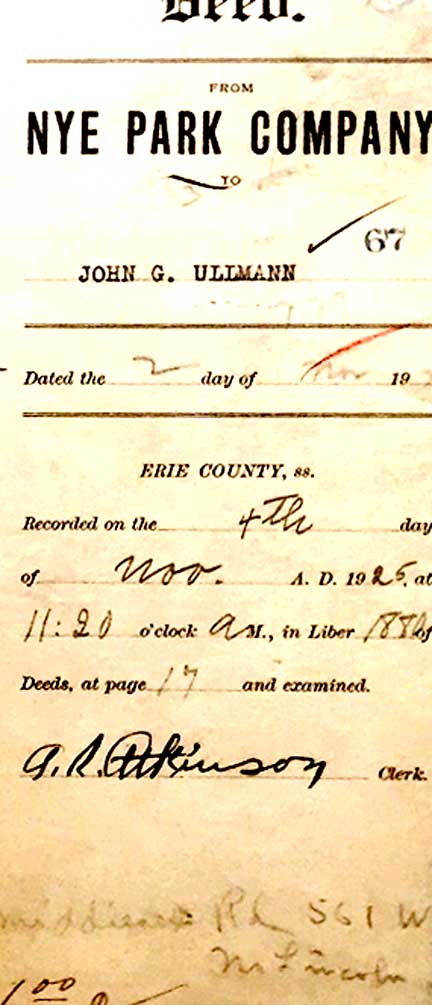 Deed.
FROM
NYE PARK COMPANY
TO
67
JOHN G. ULLMANN
Dated the 2 day of Nov 19
ERIE COUNTY, ss.
Recorded on the 4th day
of Nov. A. D. 1925, at
11:20 o'clock A M., in Liber of
Deeds, at page 17 and examined.
Clerk.
Rd 561 W
Lincoln
1.00